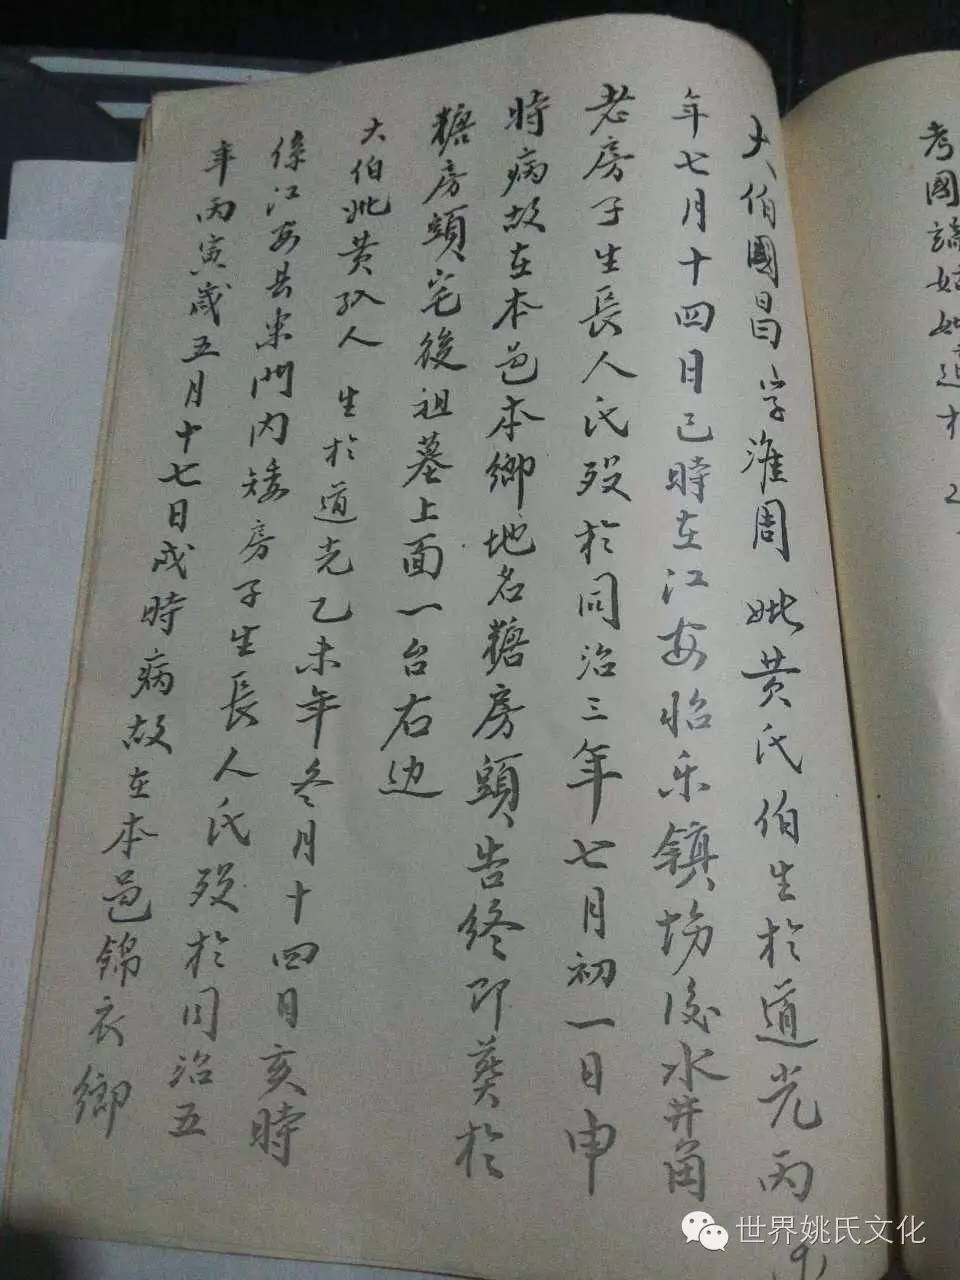 考國
大伯國昌字淮周 妣黃氏伯生於道光丙
年七月十四日己時在江安怡乐镇場後水井角
老房子生長人氏歿於同治三年七月初一日申
時病故在本邑本鄉地名糖房頭告終即葬於
糖房頭宅後祖墓上面一台右边
大伯妣黄孺人 生於道光乙未年冬月十四日亥時
係江安县東門内矮房子生長人氏歿於同治五
年丙寅歲五月十七日戌時病故在本邑錦衣鄉
世界姚氏文化